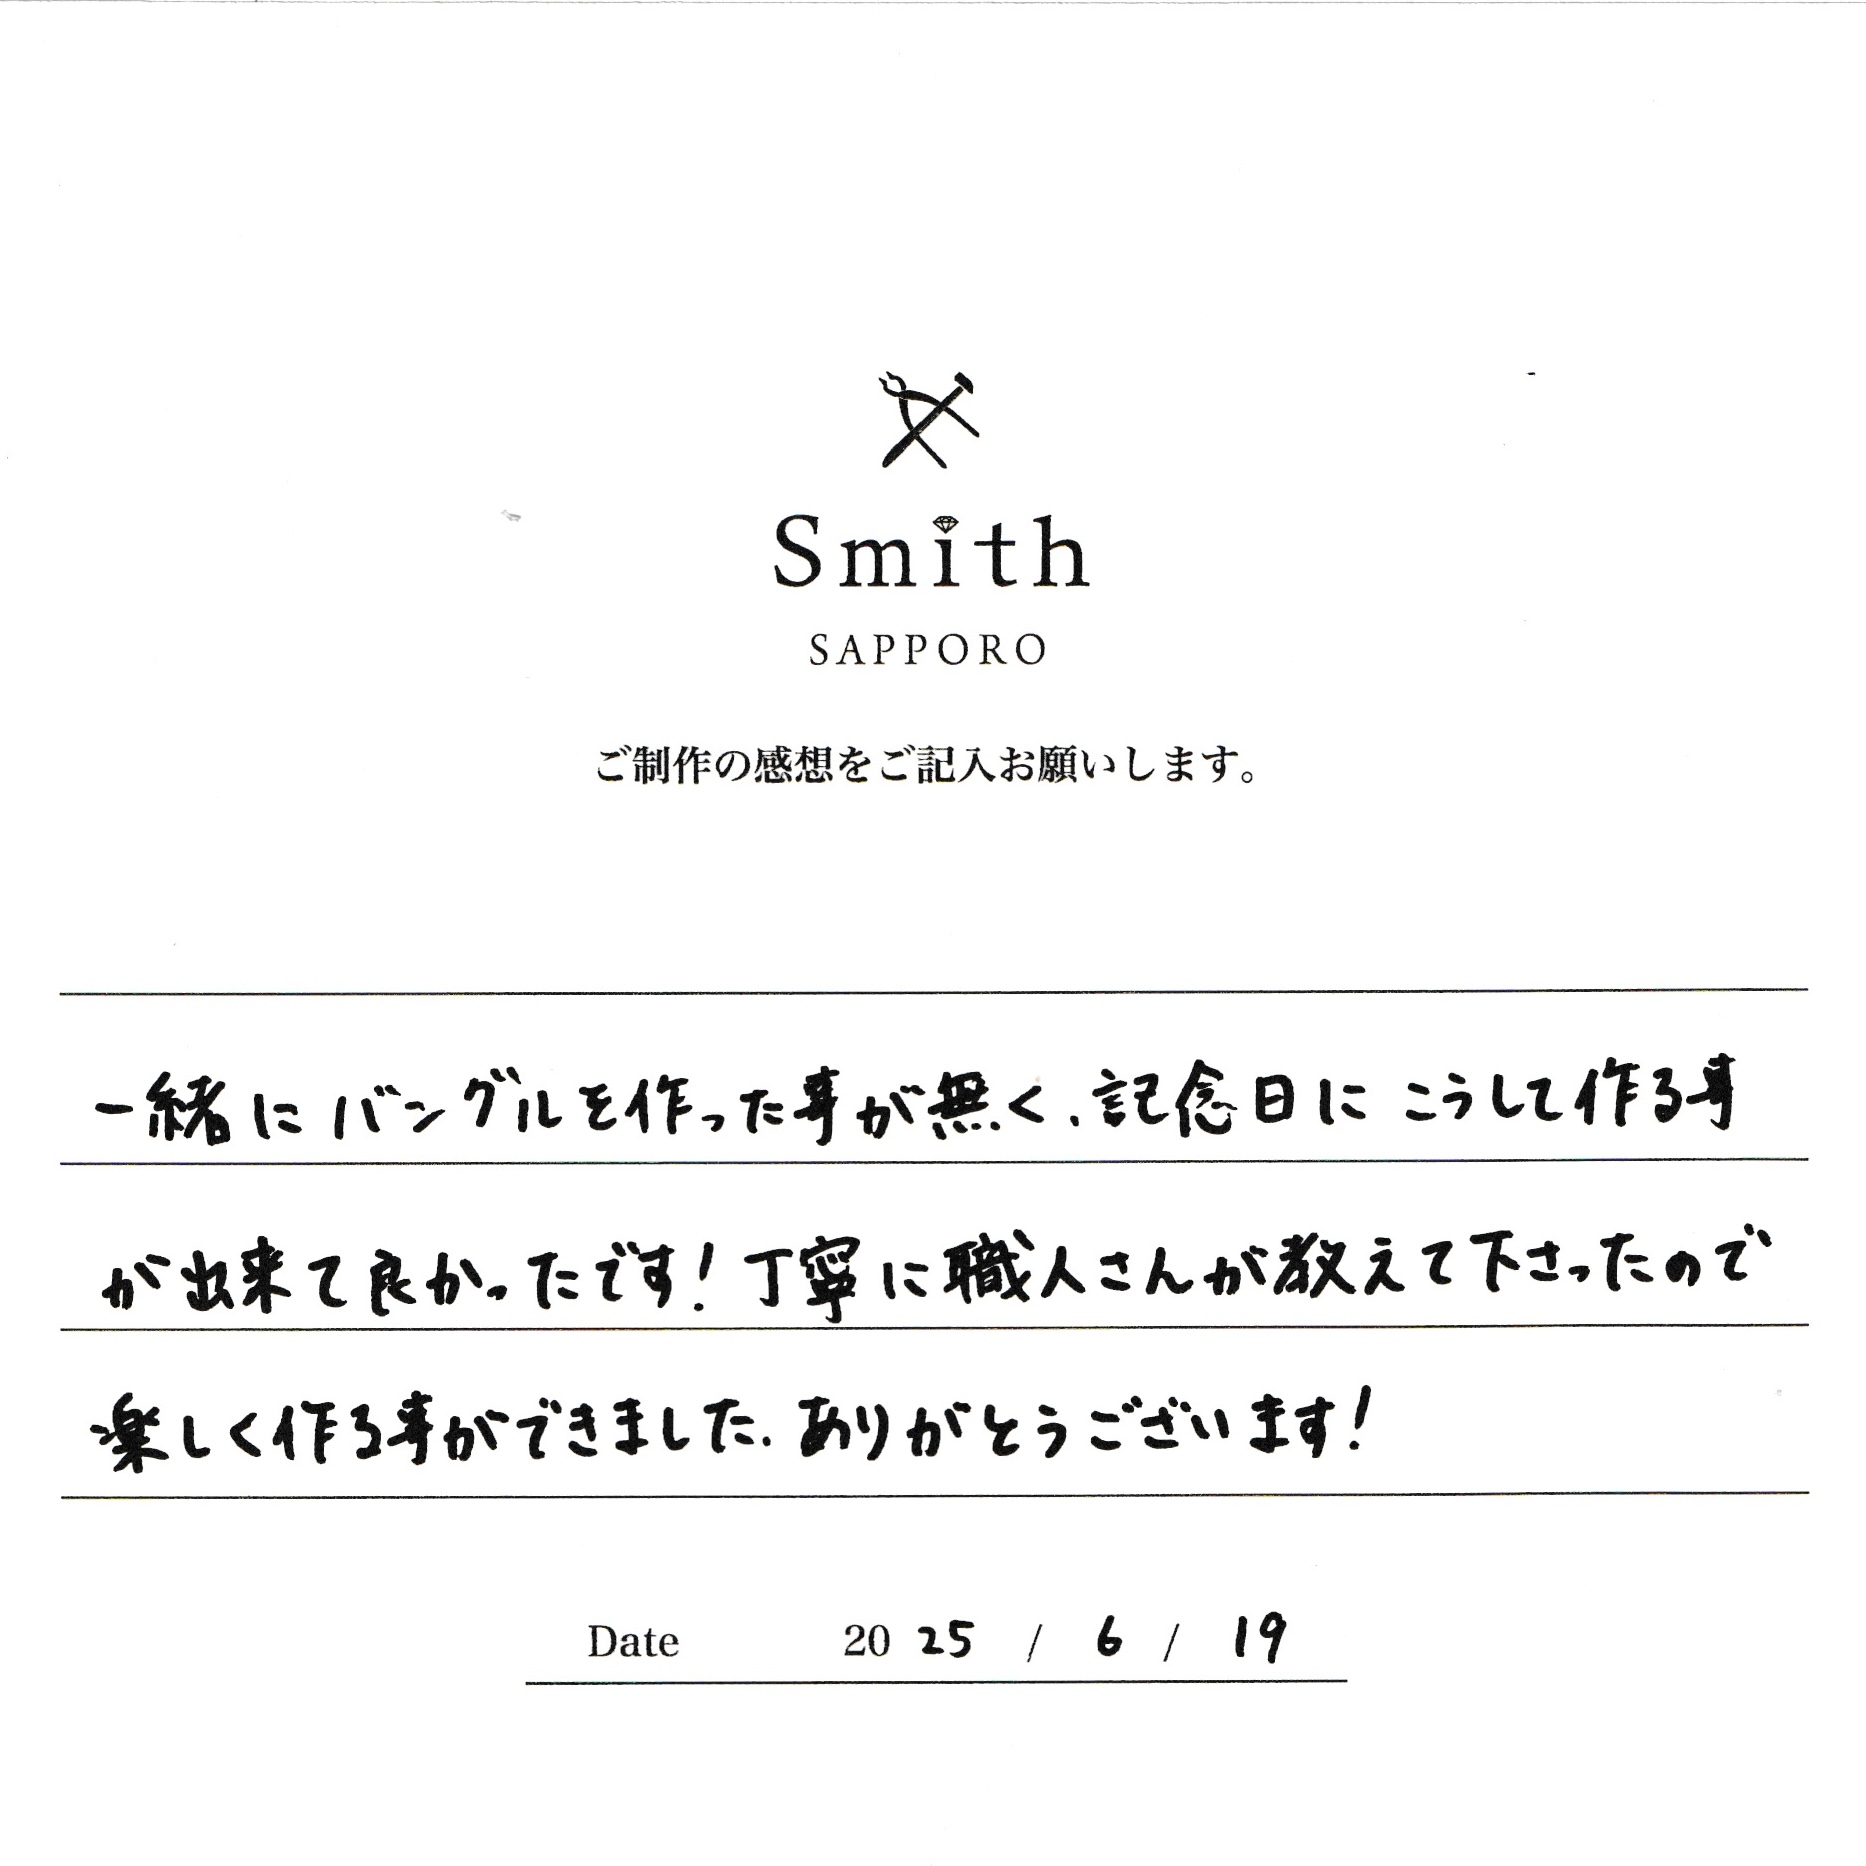 Smith
SAPPORO
ご制作の感想をご記入お願いします。
一緒にバングルを作った事が無く、記念日にこうして作る事
が出来て良かったです!丁寧に職人さんが教えて下さったので
楽しく作る事ができました.ありがとうございます!
Date 2025 / 6 / 19